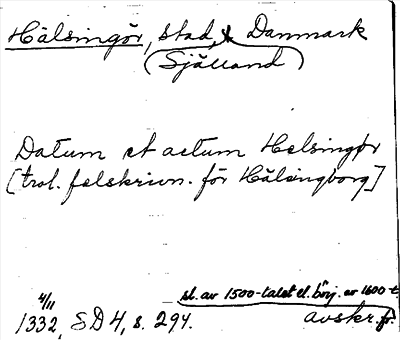 Hälsingör, stad, Danmark
(Själland)
Datum et actum Helsingør
[trol. felskrivn. för Hälsingborg]
sl. av 1500-talet el. börj. av 1600-t.
4/11
1332, SD 4, s. 294.
avskr. fr.